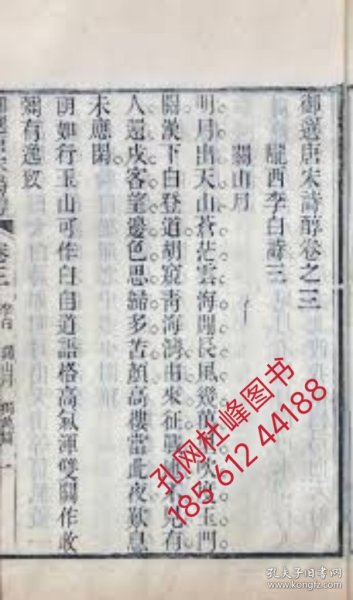 御選唐宋詩醇卷之三
隴西李白詩三
關山月
明月出天山蒼茫雲海間長風幾萬 吹 玉門
關漢下白登道胡窺青海灣由來征戰 見有
人還戍客望邊色思歸多苦顏高樓當此夜歎息
未應閑
朗如行玉山可作白自道語格高氣渾雙關作收
彌有逸致
卷三
李白
關山月
孔网杜峰图书
185 612 44188
孔夫子旧书网